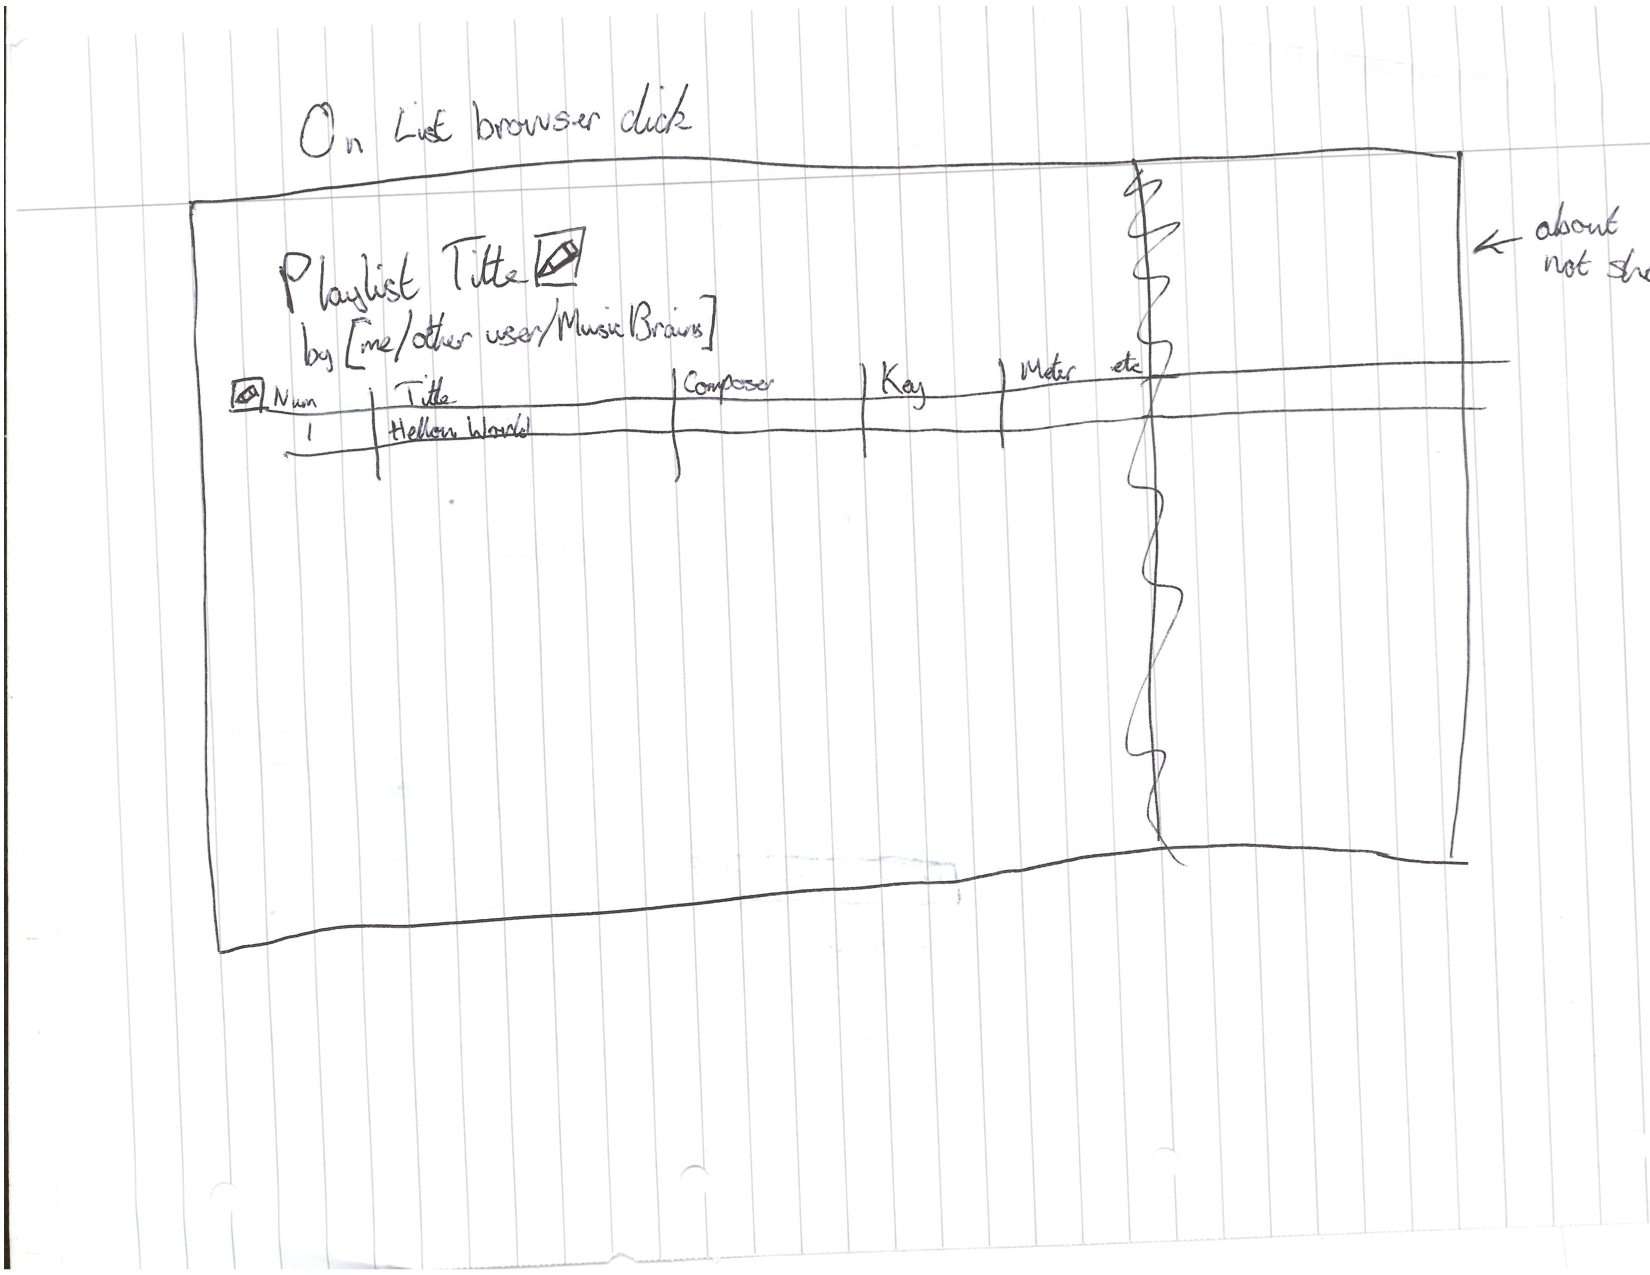 On List browser click
about
not sh
Playlist Title
by [me/other user/MusicBrains]
Num Title Composer Key Meter etc
1 Hellow World